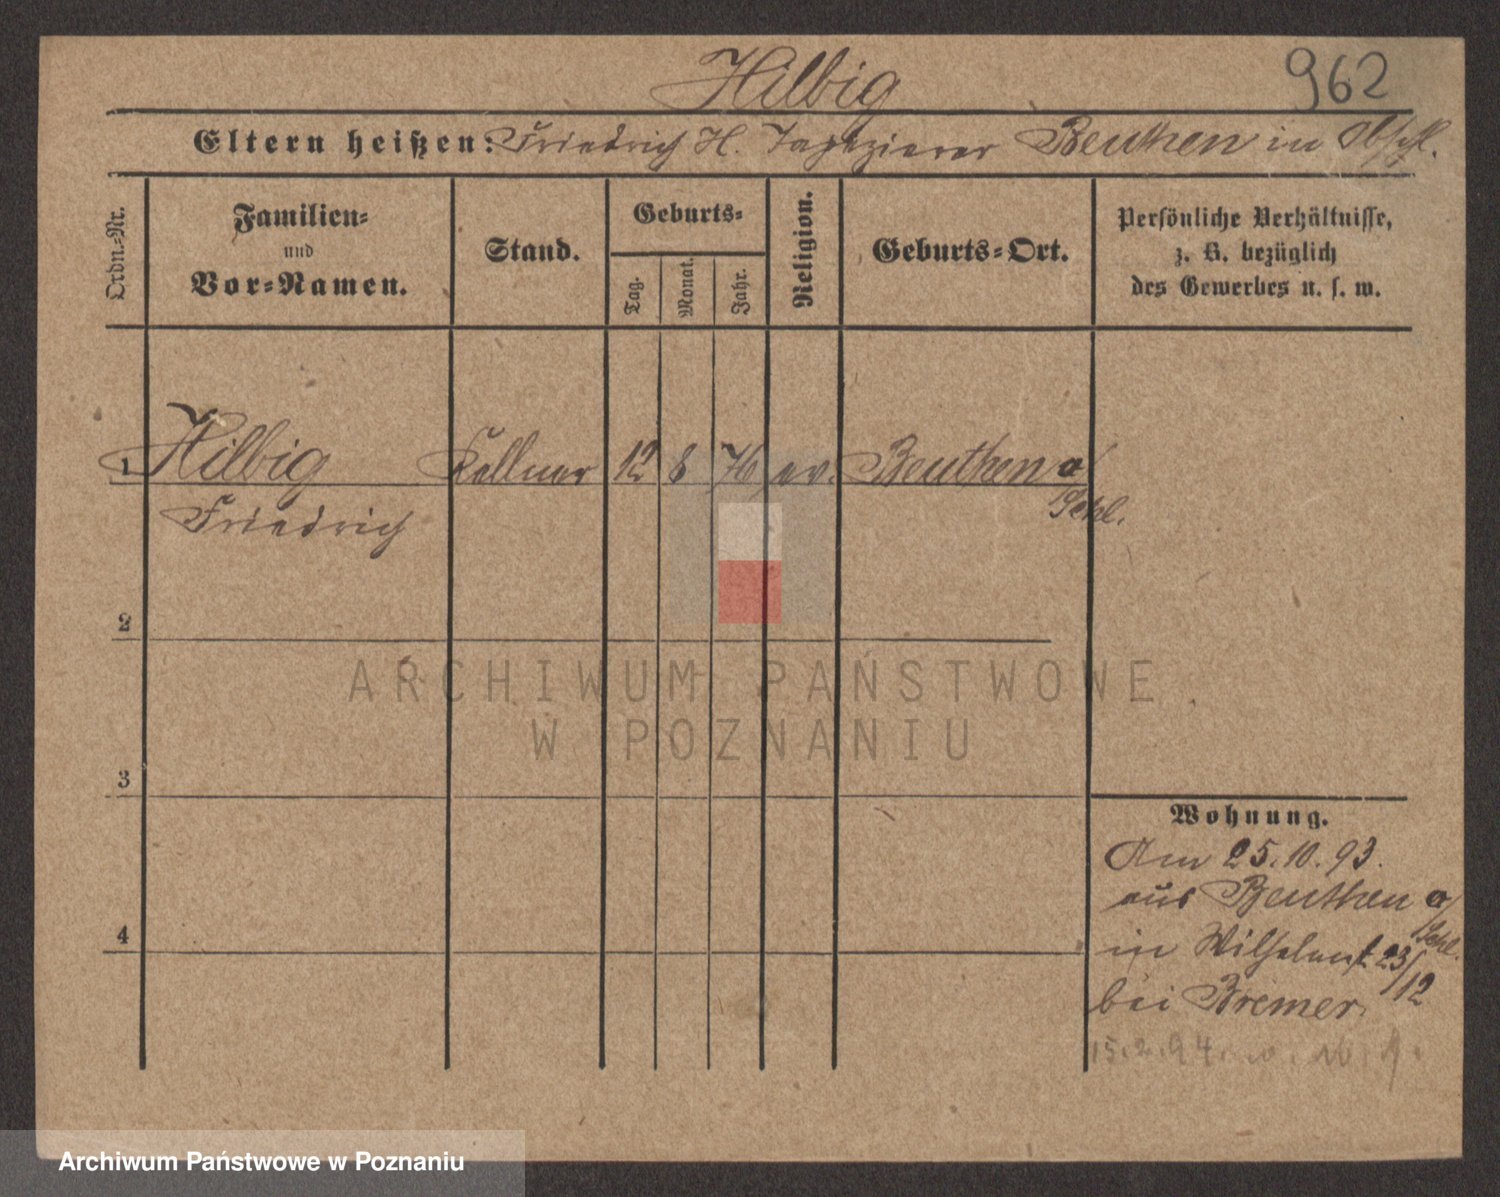 Hilbig
962
Eltern heißen: Friedrich H. Tapezierer Beuthen in Obschl.
Ordn.-Nr.
Familien-
und
Vor-Namen.
Stand.
Geburts-
Tag.
Monat.
Jahr.
Religion.
Geburts-Ort.
Persönliche Verhältnisse,
z. B. bezüglich
des Gewerbes u. s. w.
1 Hilbig Kellner 12 8 76 ev. Beuthen o/
Schl.
Friedrich
2
3
4
Wohnung.
Am 25.10.93.
aus Beuthen o/
Schl.
in Wilhelmst 23/
12
bei Bremer
15.2.94.
ARCHIWUM PAŃSTWOWE
W POZNANIU
Archiwum Państwowe w Poznaniu